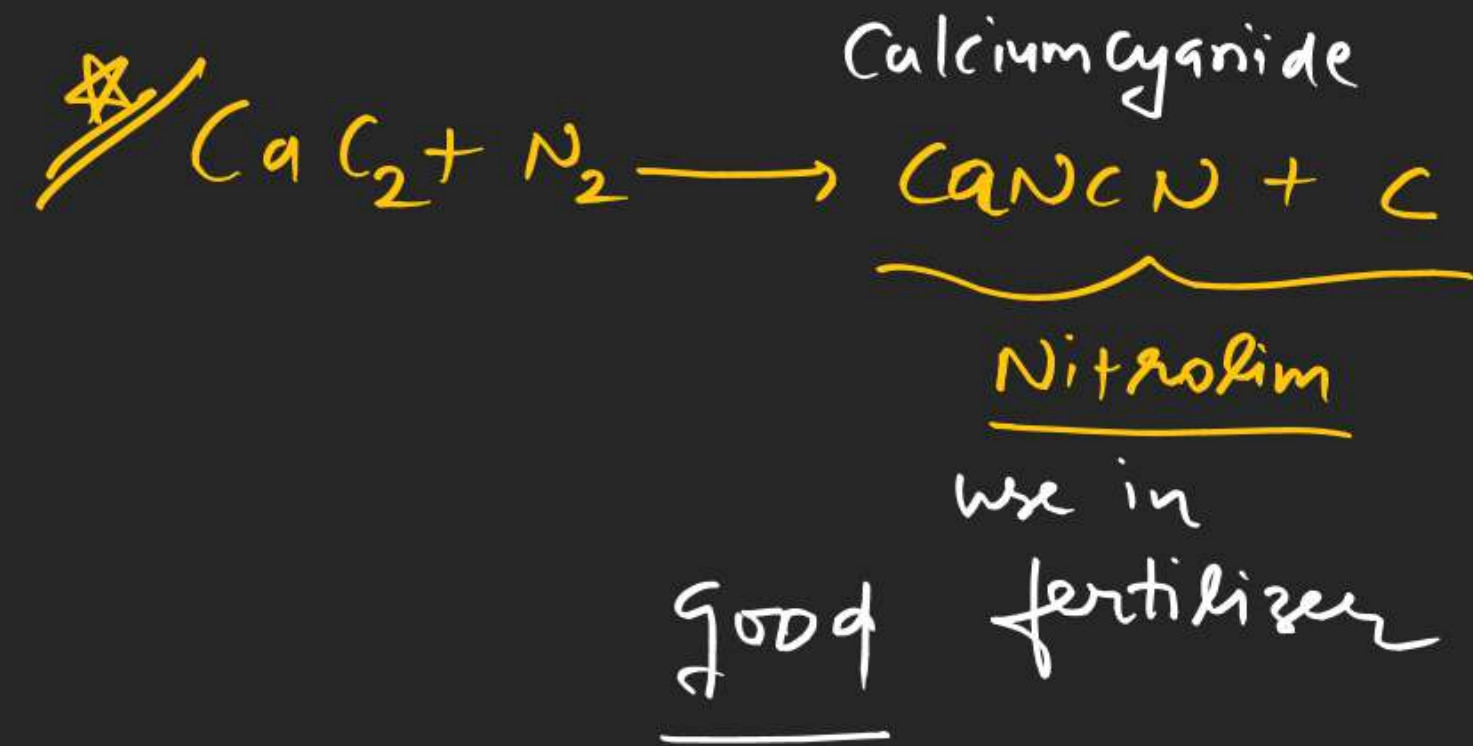 Calcium Cyanide
CaC₂ + N₂ ⟶ CaNCN + C
Nitrolim
use in
good fertilizer